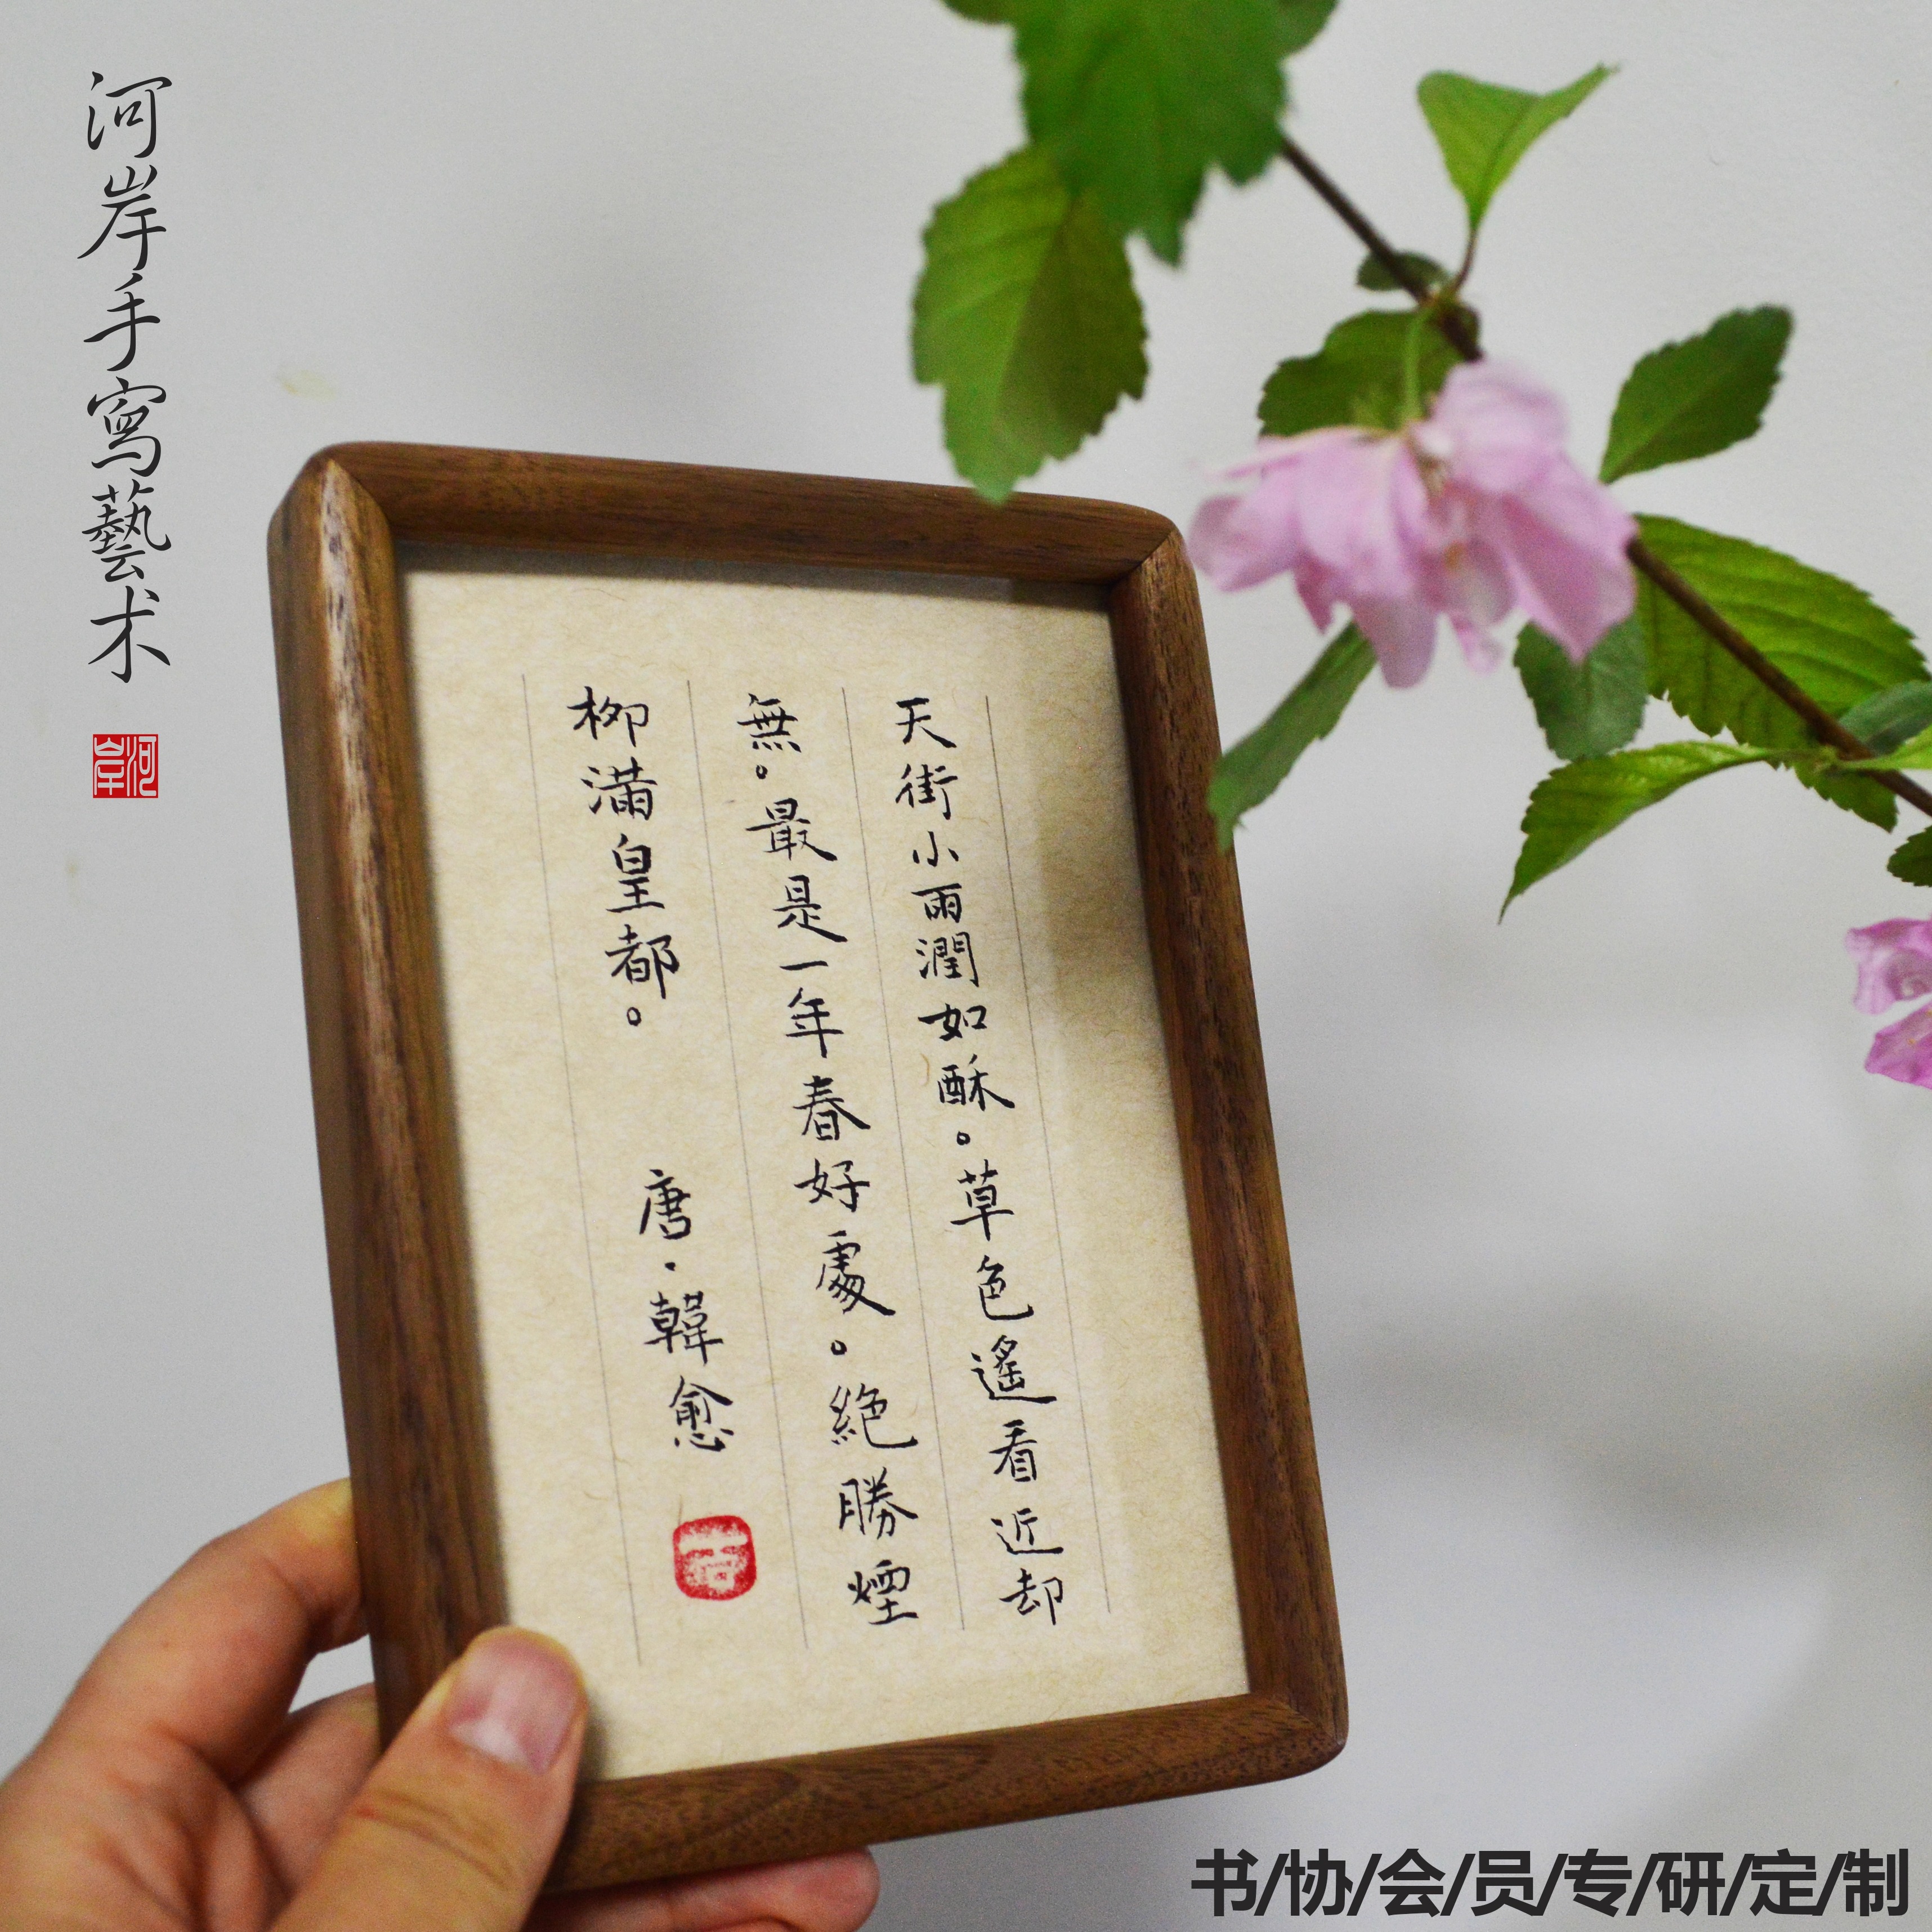 河岸手寫藝术
河岸
天街小雨潤如酥。草色遙看近却
無。最是一年春好處。絕勝煙
柳滿皇都。 唐·韓愈
书/协/会/员/专/研/定/制